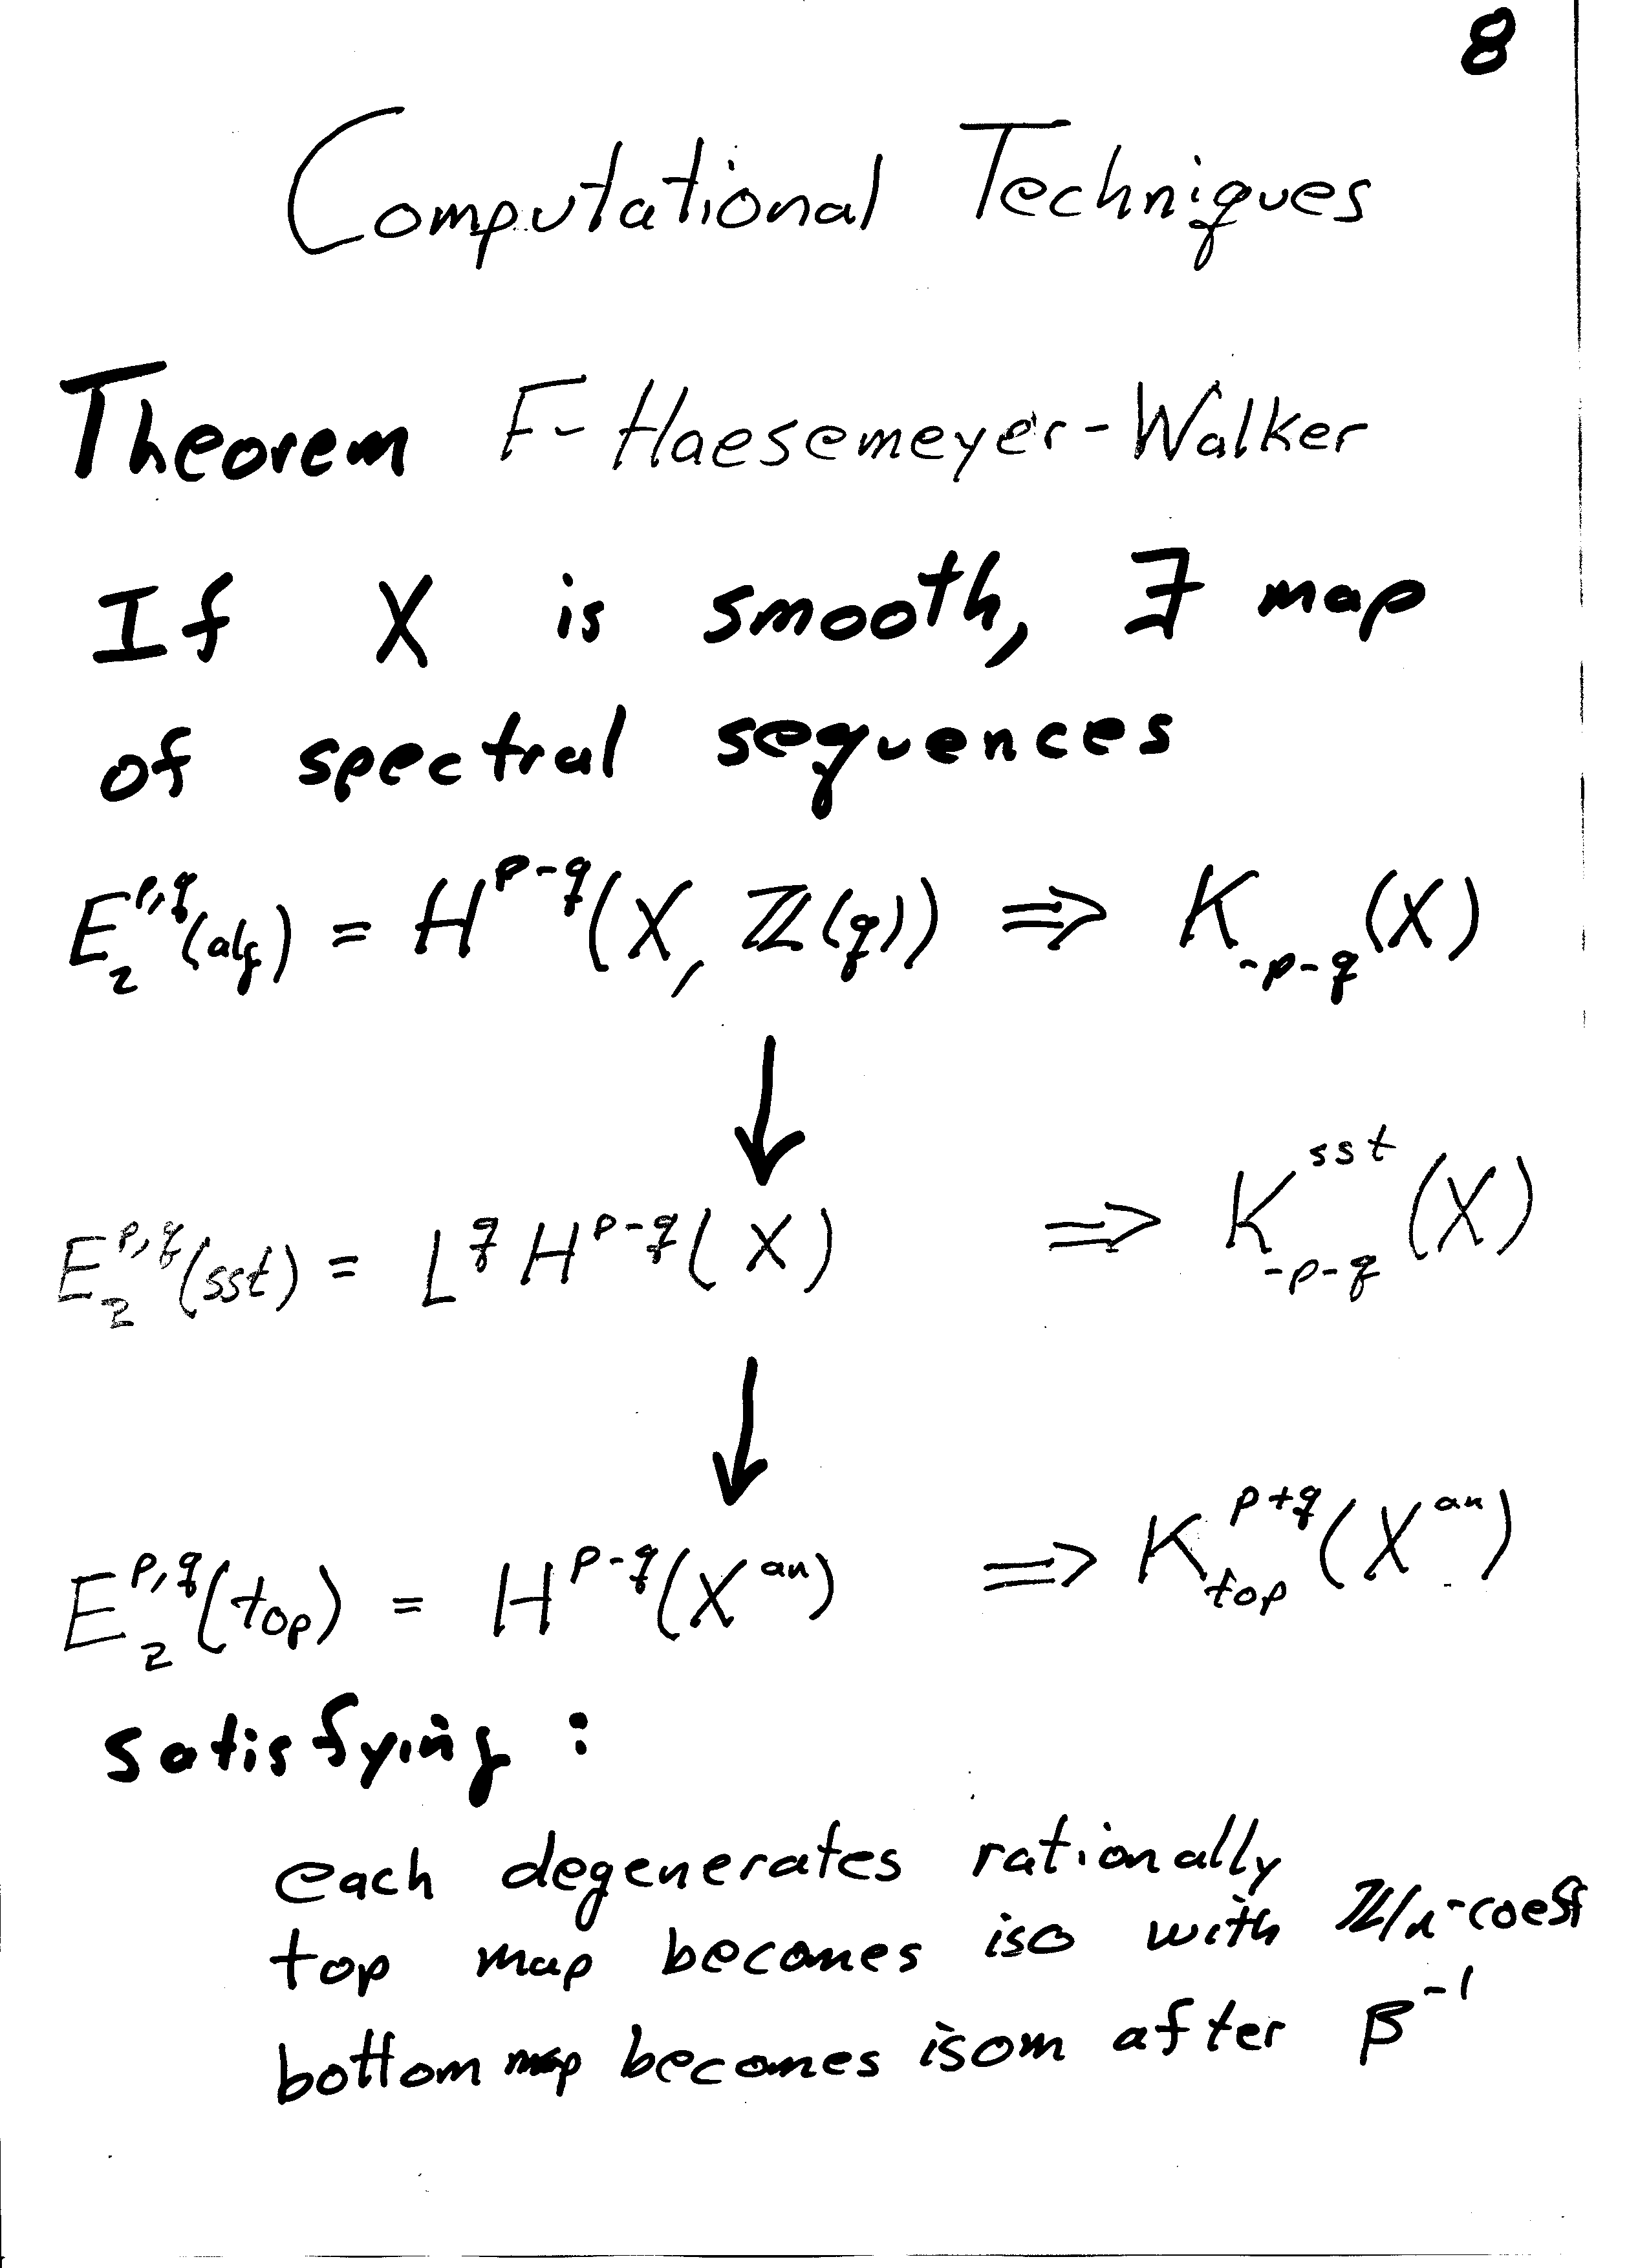 8
Computational Techniques
Theorem F-Haesemeyer-Walker
If X is smooth, ∃ map
of spectral sequences
E₂^{p,q}(alg) = H^{p-q}(X, ℤ(q)) ⇒ K_{-p-q}(X)
↓
E₂^{p,q}(sst) = L^q H^{p-q}(X) ⇒ K^{sst}_{-p-q}(X)
↓
E₂^{p,q}(top) = H^{p-q}(X^{an}) ⇒ K^{p+q}_{top}(X^{an})
satisfying:
each degenerates rationally
top map becomes iso with ℤ/n-coeff
bottom map becomes isom after β^{-1}